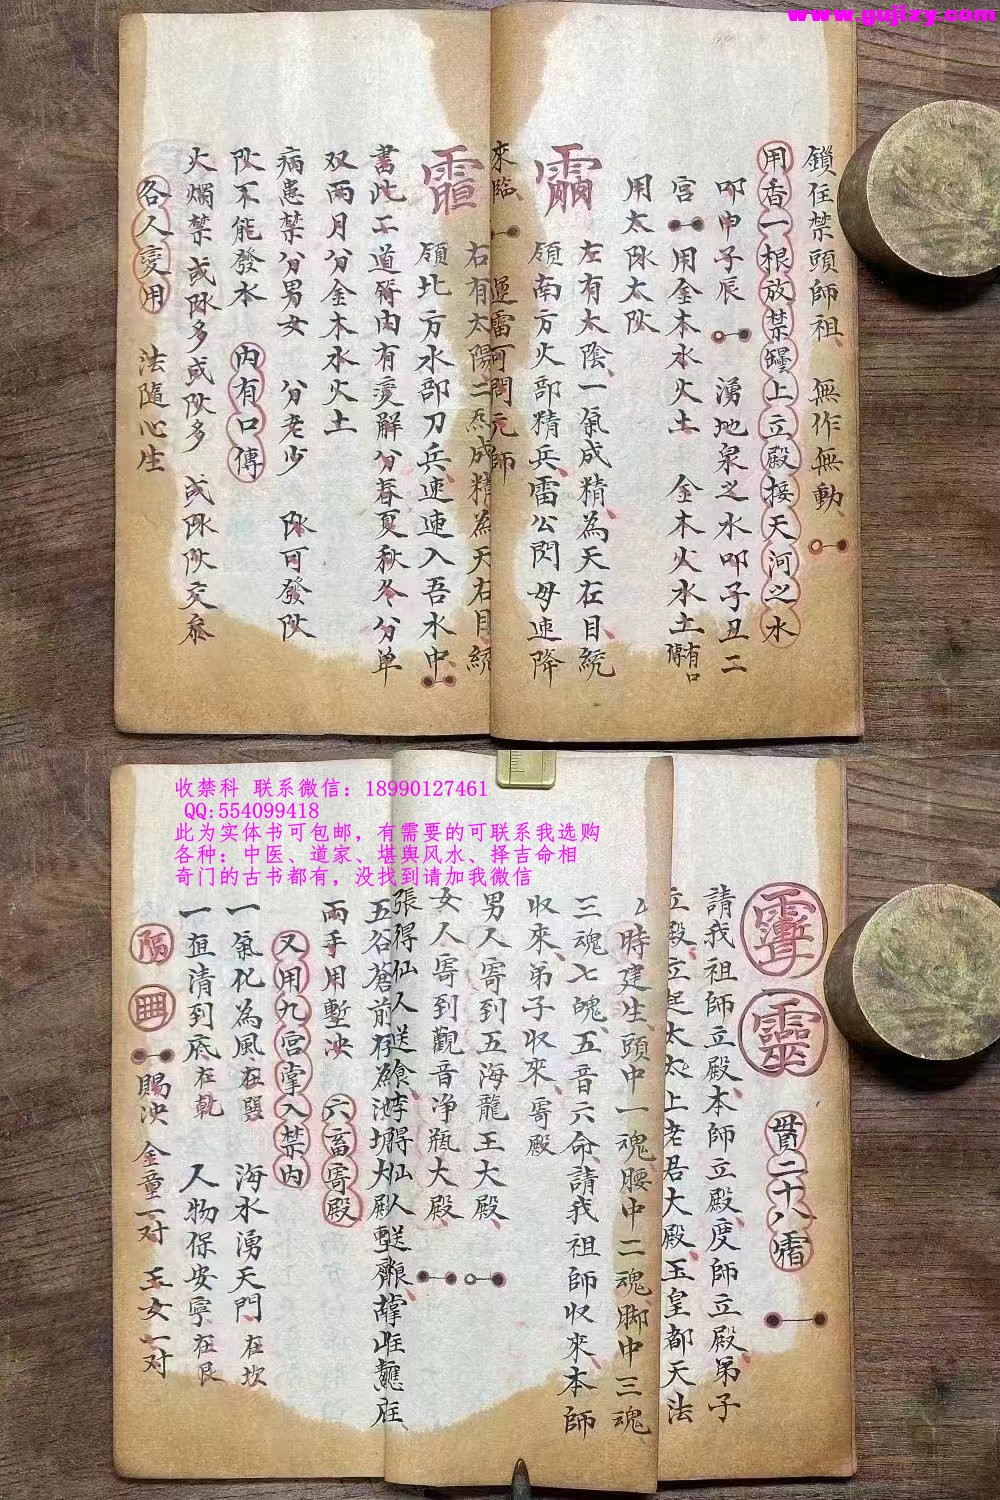 www.gujizy.com
鎖住禁頭師祖、無作無動、
用香一根放禁罎上立殿接天河之水
叩申子辰 湧地泉之水叩子丑二
宮 用金木水火土 金木火水土有口傳
用太阦太阥
左有太陰一氣成精、為天左目、統
領南方火部精兵、雷公閃母速降
來臨、 運雷可問元師
右有太陽二炁成精為天右目、統
領北方水部刀兵、速速入吾水中、
書此二道符內有變解分春夏秋冬分单
双两月分金木水火土
病患禁分男女 分老少 阦可發阥
阥不能發水 內有口傳
火燭禁或阦多或阥多 或阦阥交叅
各人變用 法隨心生
收禁科 联系微信：18990127461
QQ:554099418
此为实体书可包邮，有需要的可联系我选购
各种：中医、道家、堪舆风水、择吉命相
奇门的古书都有，没找到请加我微信
二十八
請我祖師立殿、本師立殿、度師立殿、弟子
立殿、立起太上老君大殿、玉皇都天法
時建生、頭中一魂腰中二魂脚中三魂
三魂七魄、五音六命、請我祖師收來、本師
收來、弟子收來、寄殿
男人寄到五海龍王大殿、
女人寄到觀音净瓶大殿、
張得仙人送
五谷蒼前存為
兩手用塹泱 六畜寄殿
又用九宮掌入禁內
一氣化為風在巽 海水湧天門在坎
一直清到底在乾 人物保安寧在艮
賜泱 金童一对 玉女一对